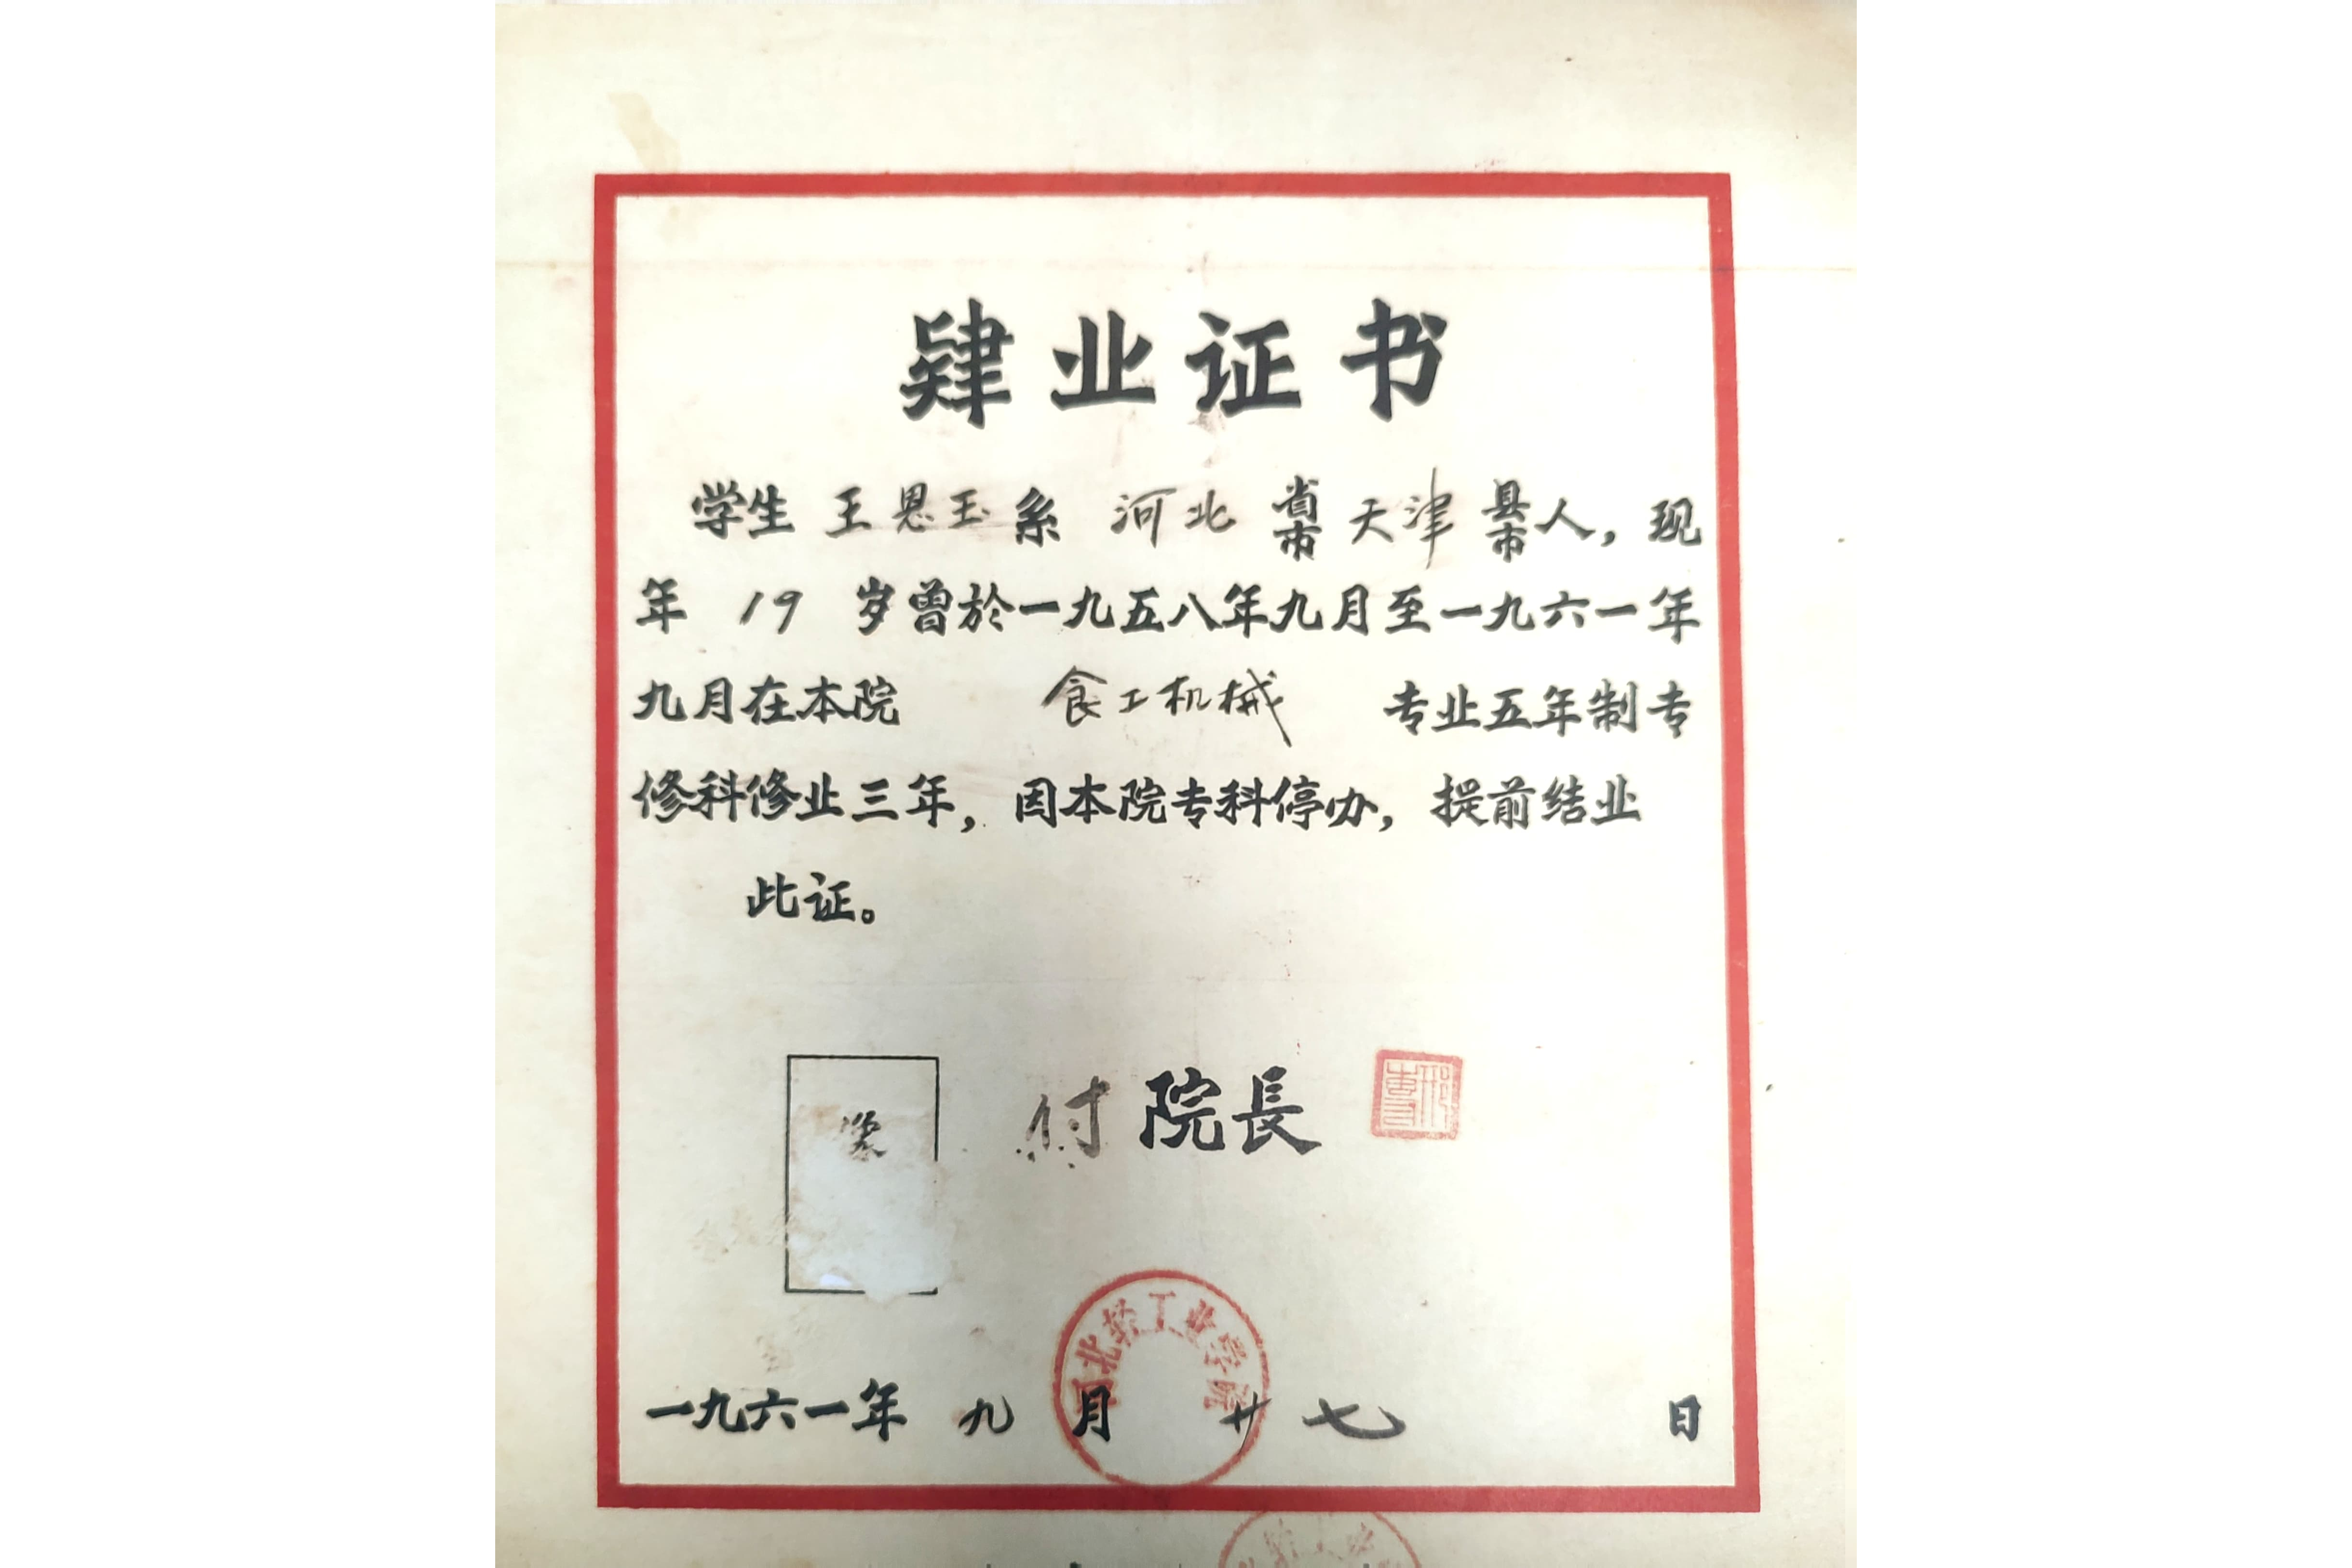 肄业证书
学生 王恩玉系 河北 省市 天津 县市人，现
年 19 岁曾於一九五八年九月至一九六一年
九月在本院 食工机械 专业五年制专
修科修业三年，因本院专科停办，提前结业
此证。
付院長
河北轻工业学院
一九六一年 九 月 廿七 日